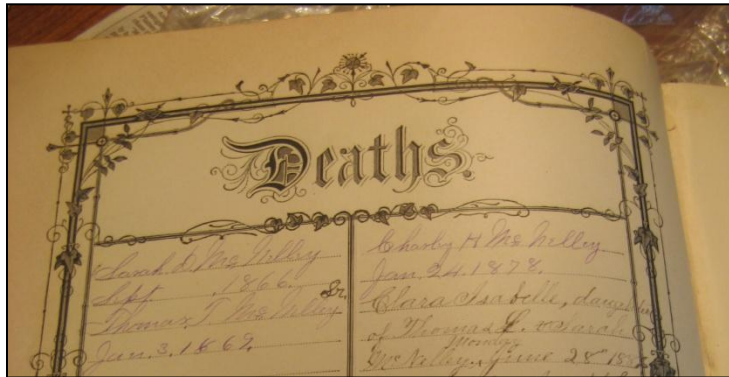 Deaths.
Sarah D. McNelley
Sept 1866.
Thomas T. McNelley Sr.
Jan. 3. 1869.
Charley H McNelley
Jan. 24. 1878.
Clara Isabelle, daughter
of Thomas L. & Sarah
Monday
McNelley. June 28th